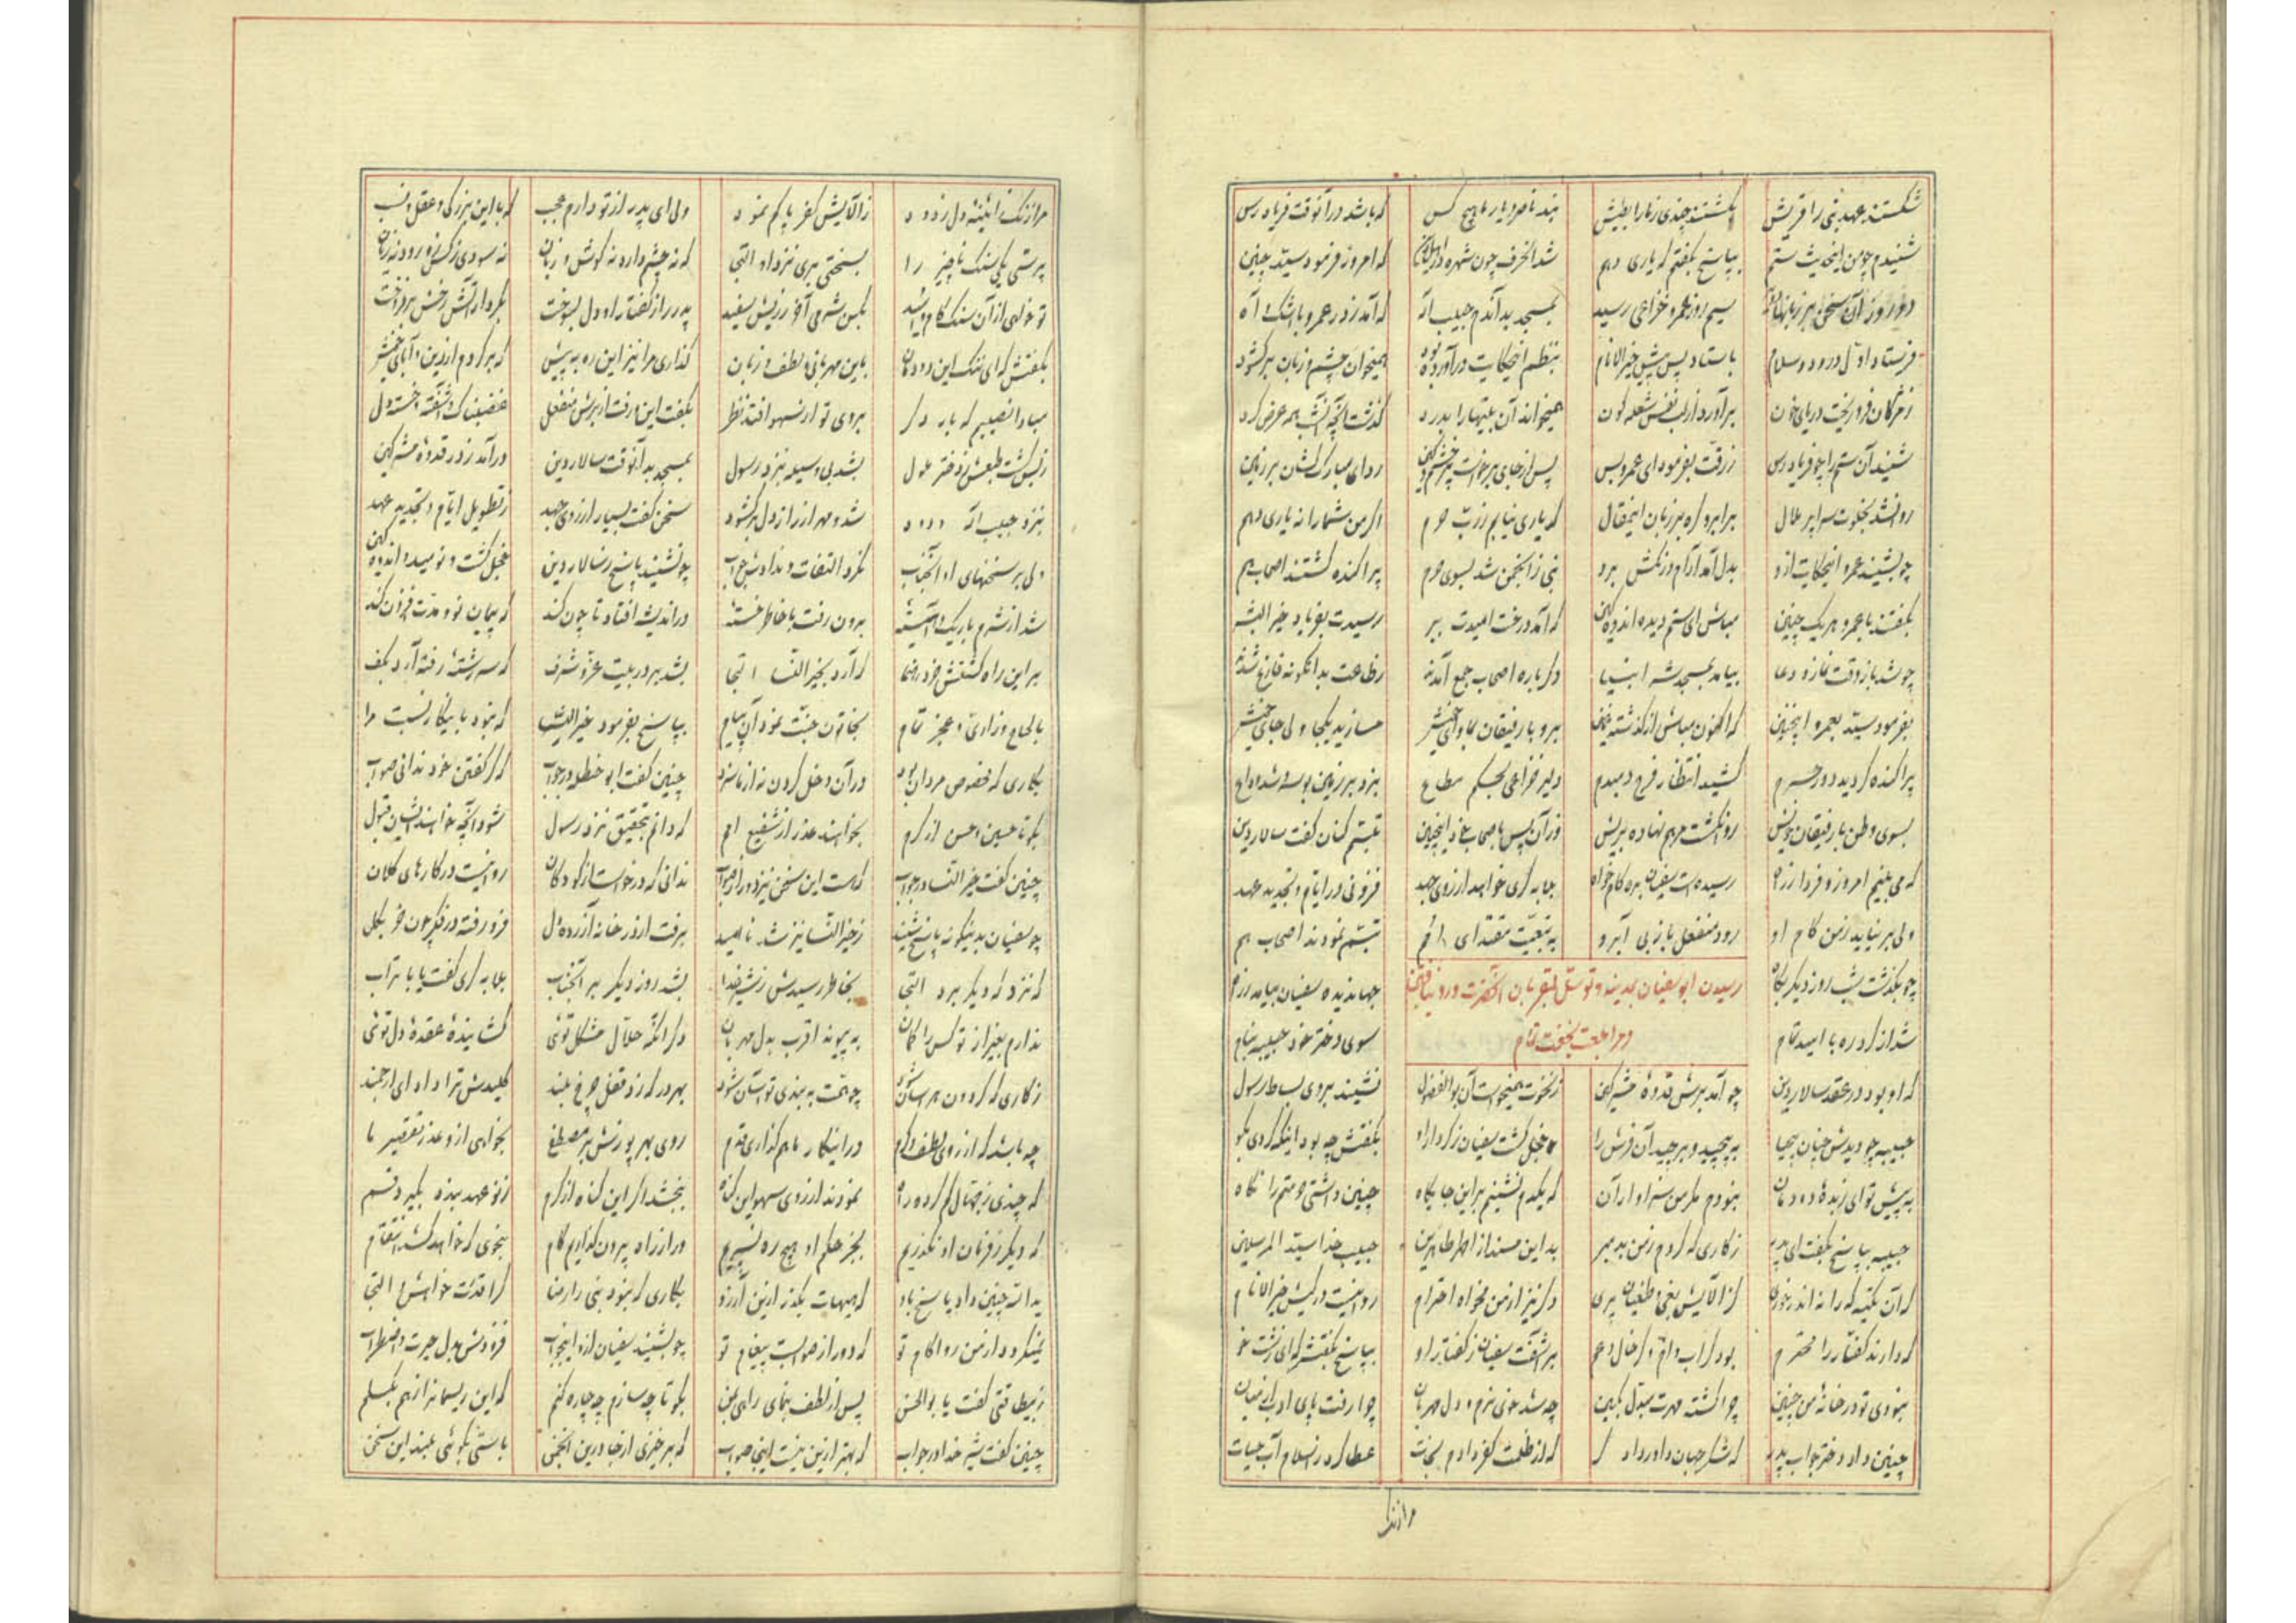 شکستند عهد نبی را قریش بکشتند چندی ز ما را بطیش
نبد ناصر و یار ما هیچ کس که باشد در آنوقت فریادرس
شنیدم چو من این حدیث ستم بپاسخ بگفتم که یاری دهم
شد الحرف چون شهره که امروز فرمود سید چنین
دو روز آن سخن بر زبانها سیم روز عمرو خزاعی رسید
بمسجد بد آندم حبیب اله که آمد ز در عمرو با اشک و آه
فرستاد اول درود و سلام باستاد پس پیش خیر الانام
بنظم این حکایت درآورده بود همیخواند چشم و زبان برکشود
ز مژگان فرو ریخت دریای خون برآورد از لب نفس شعله گون
همیخواند آن بیتها را بدرد گذشت آنچه آنشب همه عرض کرد
شنید آن ستم را چو فریادرس ز رقت بفرمود ای عمرو بس
پس از جای برخاست پر خشم و کین ردای مبارک کشان بر زمین
روانشد بخلوت سرا پر ملال بر ابرو گره بر زبان این مقال
که یاری نیابم ز رب حرم اگر من شما را نه یاری دهم
چو بشنید عمرو این حکایت ازو بدل آمد آرام و رنگش برو
نبی ز انجمن شد بسوی حرم پراکنده گشتند اصحاب هم
بگفتند با عمرو هر یک چنین مباش ای ستم دیده اندوهگین
که آمد درخت امیدت ببر رسیدت بفریاد خیر البشر
چو شد باز وقت نماز و دعا بیامد بمسجد شه انبیا
دگر باره اصحاب جمع آمدند ز طاعت بدانگونه فارغ شدند
بفرمود سید بعمرو این چنین که اکنون مباش از گذشته غمین
برو با رفیقان بماوای خویش مسازید یکجا ولی جای خویش
پراکنده گردید دور حرم کشید انتظار فرج دمبدم
دلیر خزاعی بحکم مطاع بزد بر زمین بوسه شد وداع
بسوی وطن با رفیقان خویش روان گشت مرهم نهاده بریش
وزان پس باصحاب خود این چنین تبسم کنان گفت سالار دین
که می بینم امروز و فردا ز راه رسیدست سفیان بره کام خواه
بجا به گری خواهد از روی جهد فزونی در ایام و تجدید عهد
ولی بر نیاید ز من کام او رود منفعل باز بی آبرو
به تبعیت مقتدای امم تبسم نمودند اصحاب هم
رسیدن ابوسفیان بمدینه و توسل بمقربان آنحضرت
و مراجعت بخفت تمام
چو بگذشت شب روز دیگر پگاه جهاندیده سفیان بیامد ز راه
شد از گرد ره با امید تمام سوی دختر خود حبیبه بنام
که او بود در عقد سالار دین چو آمد برش قدوهٔ مشرکین
ز نخوت همیخواست آن بوالفضول نشیند بروی بساط رسول
حبیبه چو دیدش چنان بیحیا به پیچید و برچید آن فرش را
خجل گشت سفیان ز کردار او بگفتش چه بود اینکه کردی بگو
به پیش تو ای زبدهٔ دودمان نبودم مگر من سزاوار آن
که یکدم نشینم برین جایگاه چنین داشتی حرمتم را نگاه
حبیبه بپاسخ بگفت ای پدر ز کاری که کردم ز من بد مبر
بد این مسند از اطهر طاهرین حبیب خدا سید المرسلین
که آن تکیه گه را نه اندر خوری کز آلایش بغی و طغیان پری
دگر نیز از من مخواه احترام روا نیست در کیش خیر الانام
که دارند کفار را محترم بود گر اب و ام و گر خال و عم
برآشفت سفیان ز گفتار او بپاسخ بگفتش که ای زشت خو
نبودی تو در خانهٔ من چنین چرا گشته مهرت مبدل بکین
چه شد خوی نرم و دل مهربان چرا رفت پای ادب از میان
چنین داد دختر جواب پدر که شکر جهان داور دادگر
که از ظلمت کفر دادم نجات عطا کرد ز اسلام آب حیات
مرا زنگ
مرا زنگ از آئینه دل زدود ز آلایش کفر پاکم نمود
ولی ای پدر از تو دارم عجب که با این بزرگی و عقل و نسب
پرستی یکی سنگ ناچیز را بسختی بری نزد او التجا
که نه چشم دارد نه گوش و زبان نه سودی ز کس زو رود نه زیان
تو خواهی از آن سنگ کام و امید بکن شرمی آخر ز ریش سفید
پدر را ز گفتار او دل بسوخت بکردار آتش رخش برفروخت
بگفتش که ای ننگ این دودمان باین مهربانی و لطف و زبان
گذاری مرا نیز این ره به پیش که برگردم از دین آبای خویش
مبادا نصیبم که بار دگر بروی تو از سهو افتد نظر
بگفت این و رفت از برش منفعل غضبناک و آشفته و خسته دل
ز بس گشت طبعش ز دختر ملول بشد بی وسیله بنزد رسول
بمسجد بد آنوقت سالار دین درآمد ز در قدوهٔ مشرکین
بنزد حبیب اله ودود شد و مهر از راز دل برگشود
سخن گفت بسیار از روی جهد ز تطویل ایام و تجدید عهد
ولی بر سخنهای او آنجناب نکرد التفات و ندادش جواب
چو نشنید پاسخ ز سالار دین خجل گشت و نومید و اندوهگین
شد از شرم باریک و آهسته برون رفت با خاطر خسته
در اندیشه افتاد تا چون کند که پیمان نو و مدت افزون کند
برین راه گشتش خرد رهنما که آرد بخیر النسا التجا
بشد بر در بیت عز و شرف که سررشته رفته آرد بکف
بالحاح و زاری و عجز تمام بخاتون جنت نمود آن پیام
بپاسخ بفرمود خیر النسا که نبود باینکار نسبت مرا
بکاری که مخصوص مردان بود در آن دخل کردن نه از ما سزد
چنین گفت ابو حنظله در جواب که گر گفتن خود ندانی صواب
بگو تا حسین و حسن از کرم بخواهند عذر از شفیع امم
که دانم بتحقیق نزد رسول شود آنچه خواهند ایشان قبول
چنین گفت خیر النسا در جواب که هست این سخن نیز دور از صواب
ندانی که درخواست از کودکان روا نیست در کارهای کلان
چو سفیان بدینگونه پاسخ شنید ز خیر النسا نیز شد ناامید
برفت از در خانه آزرده دل فرو رفته در فکر چون خر بگل
که نزد که دیگر برد التجا بخاطر رسیدش ز شیر خدا
بشد روز دیگر بر آنجناب بلابه گری گفت یا بوتراب
ندارم بغیر از تو کس را گمان به پیوند اقرب بدل مهربان
دگر آنکه حلال مشکل توئی گشایندهٔ عقدهٔ دل توئی
ز کاری که گردون هراسان شود چو همت به بندی تو آسان شود
بهر در که زد قفل چرخ بلند کلیدش ترا داد ای ارجمند
چه باشد گر از روی لطف و کرم در اینکار با هم گذاری قدم
روی بهر پوزش بر مصطفی بخواهی ازو عذر تقصیر ما
که چندی ز جهال گم کرده راه نمودند از روی سهو این گناه
ببخشد اگر این گناه از کرم ز نو عهد بندد بگیرد قسم
که دیگر ز فرمان او نگذریم بجز حکم او هیچ ره نسپریم
ور از راه بیرون گذاریم گام بنحوی که خواهد کشد انتقام
ید الله چنین داد پاسخ باو که هیهات بگذر ازین آرزو
بکاری که نبود نبی را رضا کرا قدرت خواهش و التجا
نمیگردد از من روا کام تو که دور از صوابست پیغام تو
چو بشنید سفیان ازو این جواب فزودش بدل حیرت و اضطراب
ز بیطاقتی گفت یا بوالحسن پس از لطف بنمای راهی بمن
بگو تا چه سازم چه چاره کنم که این ریسمان را ز هم بگسلم
چنین گفت شیر خدا در جواب که بهتر ازین نیست اینجا صواب
که برخیزی از جا درین انجمن باستی بگوئی بلند این سخن